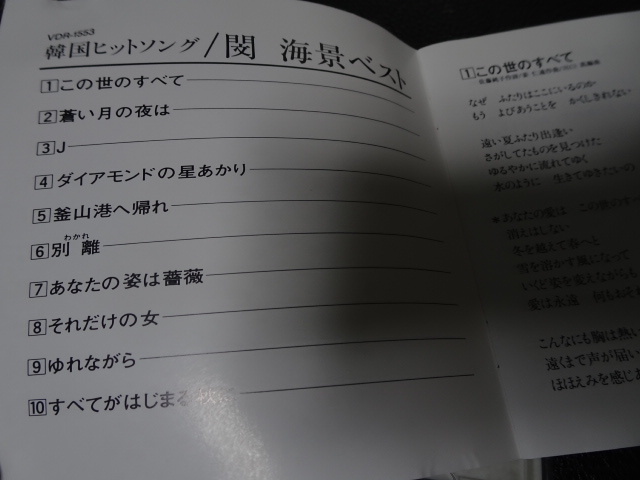 VDR-1553
韓国ヒットソング/閔 海景ベスト
1 この世のすべて
2 蒼い月の夜は
3 J
4 ダイアモンドの星あかり
5 釜山港へ帰れ
わかれ
6 別離
7 あなたの姿は薔薇
8 それだけの女
9 ゆれながら
10 すべてがはじまる
1 この世のすべて
なぜ ふたりはここにいるのか
もう よびあうことを かくしきれない
遠い夏ふたり出逢い
さがしてたものを見つけた
ゆるやかに流れてゆく
水のように 生きてゆきたい
*あなたの愛は この世のす
消えはしない
冬を越えて春へと
雪を溶かす風になって
いくど姿を変えながら
愛は永遠 何も
こんなにも胸は熱い
遠くまで声が届い
ほほえみを感じ